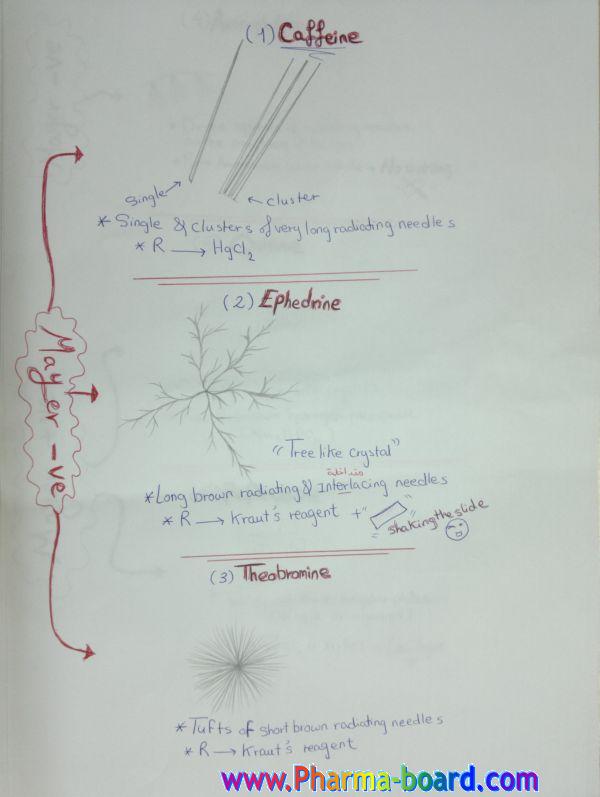 (1) Caffeine
single
cluster
* Single & clusters of very long radiating needles
* R → HgCl2
(2) Ephedrine
Mayer -ve
"Tree like crystal"
متداخلة
* Long brown radiating & interlacing needles
* R → Kraut's reagent + " "
shaking the slide
(3) Theobromine
* Tufts of short brown radiating needles
* R → Kraut's reagent
www.Pharma-board.com